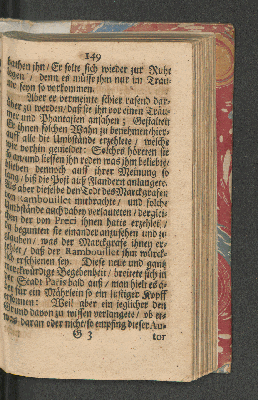 149
bathen ihn / Er solte sich wieder zur Ruhe
legen / denn es müsse ihm nur im Trau-
me seyn so vorkommen.
Aber er vermeinte schier rasend dar-
über zu werden / daß sie ihn vor einen Träu-
mer und Phantasten ansahen; Gestalten
Er ihnen solchen Wahn zu benehmen / hier-
auff alle die Umbstände erzehlte / welche
wir vorhin gemeldet. Solches höreten sie
so an / und liessen ihn reden was ihm beliebte /
blieben dennoch auff ihrer Meinung so
lang / biß die Post auß Flandern anlangete.
Als aber dieselbe den Tod des Marckgrafen
von Rambouillet mitbrachte / und solche
Umbstände auch dabey verlauteten / derglei-
chen der von Preci ihnen hatte erzehlet /
da begunten sie einander anzusehen und zu
glauben / was der Marckgrafe ihnen er-
zehlet / daß der Rambouillet ihm würck-
lich erschienen sey. Diese neue und gantz
merckwürdige Begebenheit / breitete sich in
der Stadt Paris bald auß / man hielt es a-
ber für ein Mährlein so ein lustiger Kopff
ersonnen: Weil aber ein jeglicher den
Grund davon zu wissen verlangete / ob et-
was daran oder nicht / so empfing dieser Au-
G 3 tor